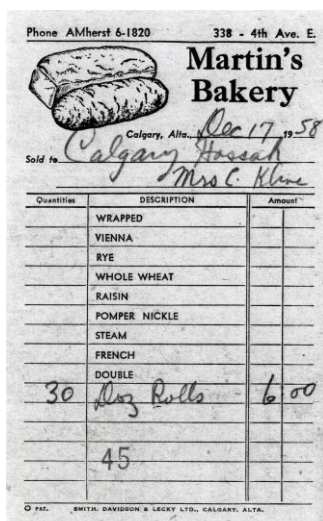 Phone AMherst 6-1820 338 - 4th Ave. E.
Martin's
Bakery
Calgary, Alta., Dec 17 1958
Sold to Calgary Hossah
Mrs C. Kline
Quantities DESCRIPTION Amount
WRAPPED
VIENNA
RYE
WHOLE WHEAT
RAISIN
POMPER NICKLE
STEAM
FRENCH
DOUBLE
30 Doz Rolls 6.00
45
PAT. SMITH, DAVIDSON & LECKY LTD., CALGARY, ALTA.